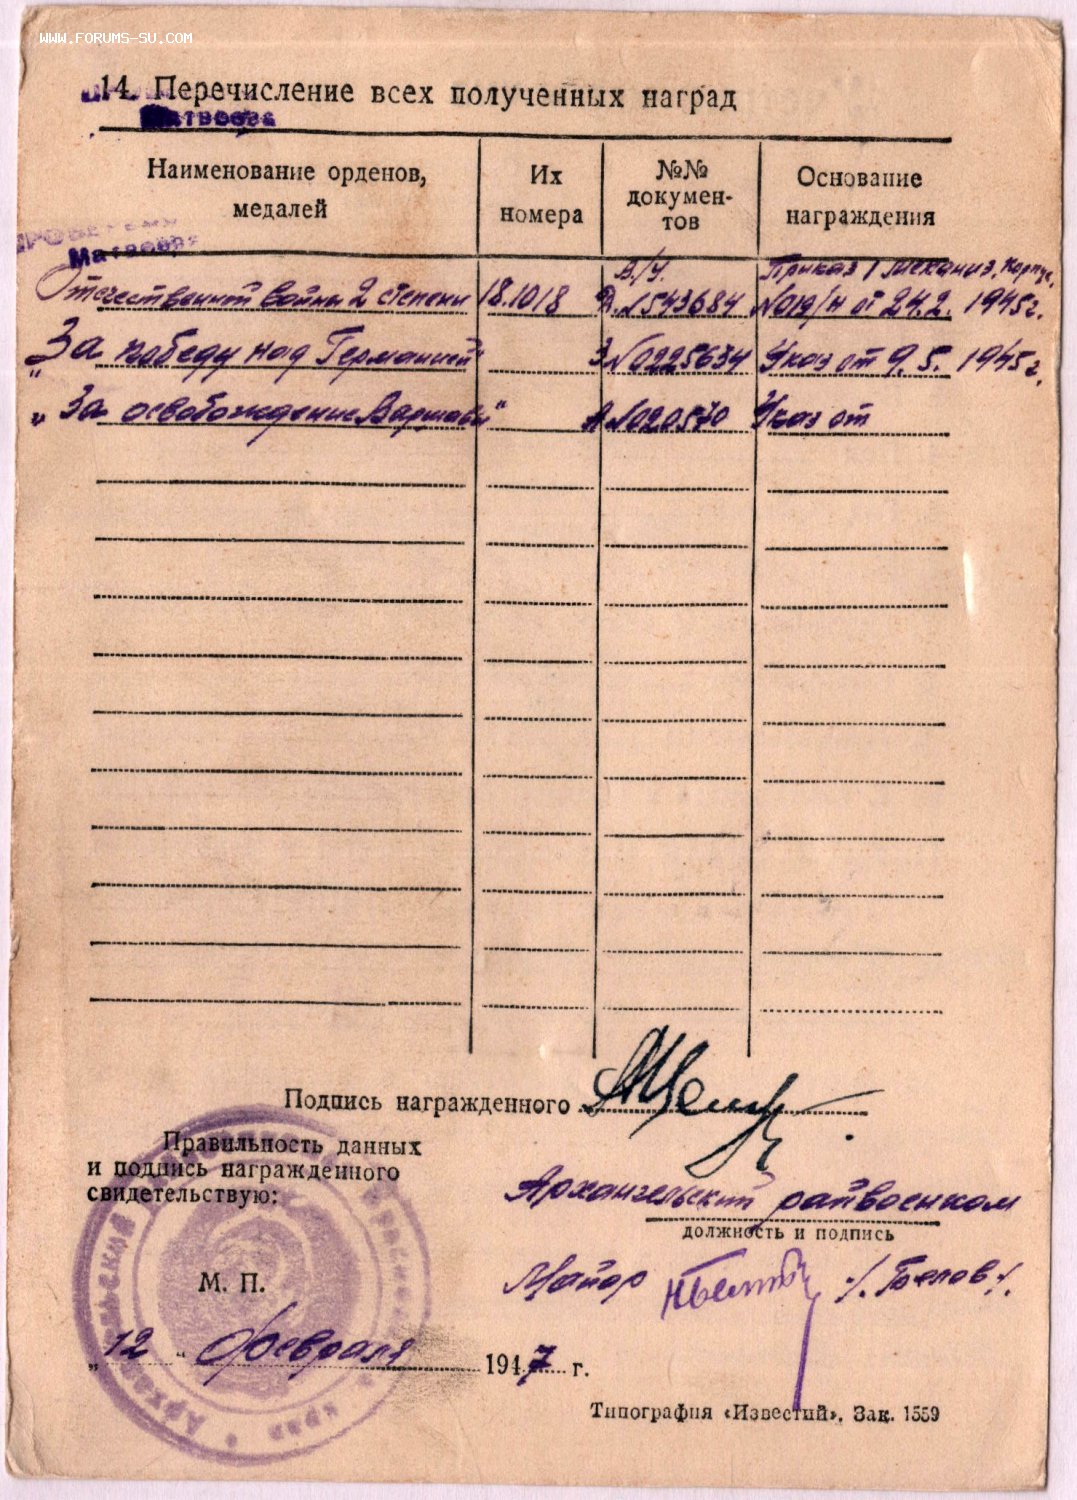 WWW.FORUMS-SU.COM
14. Перечисление всех полученных наград
Матвеева
Наименование орденов, медалей
Их номера
№№ докумен-тов
Основание награждения
Матвеева
В/у. Приказ 1 механиз. корпус.
Отечественной войны 2 степени 181018 Д. № 543684 № 019/н от 24.2. 1945г.
„За победу над Германией" З № 0225634 Указ от 9.5. 1945г.
„За освобождение Варшавы" А № 020570 Указ от
Подпись награжденного
Правильность данных
и подпись награжденного
свидетельствую:
Архангельский райвоенком
должность и подпись
М. П.
Майор /. Белов /.
„12" февраля 1947 г.
Типография «Известий». Зак. 1559